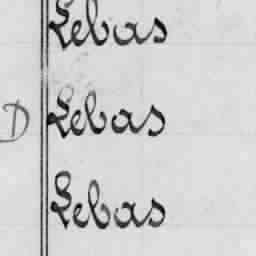 Lebas
D Lebas
Lebas